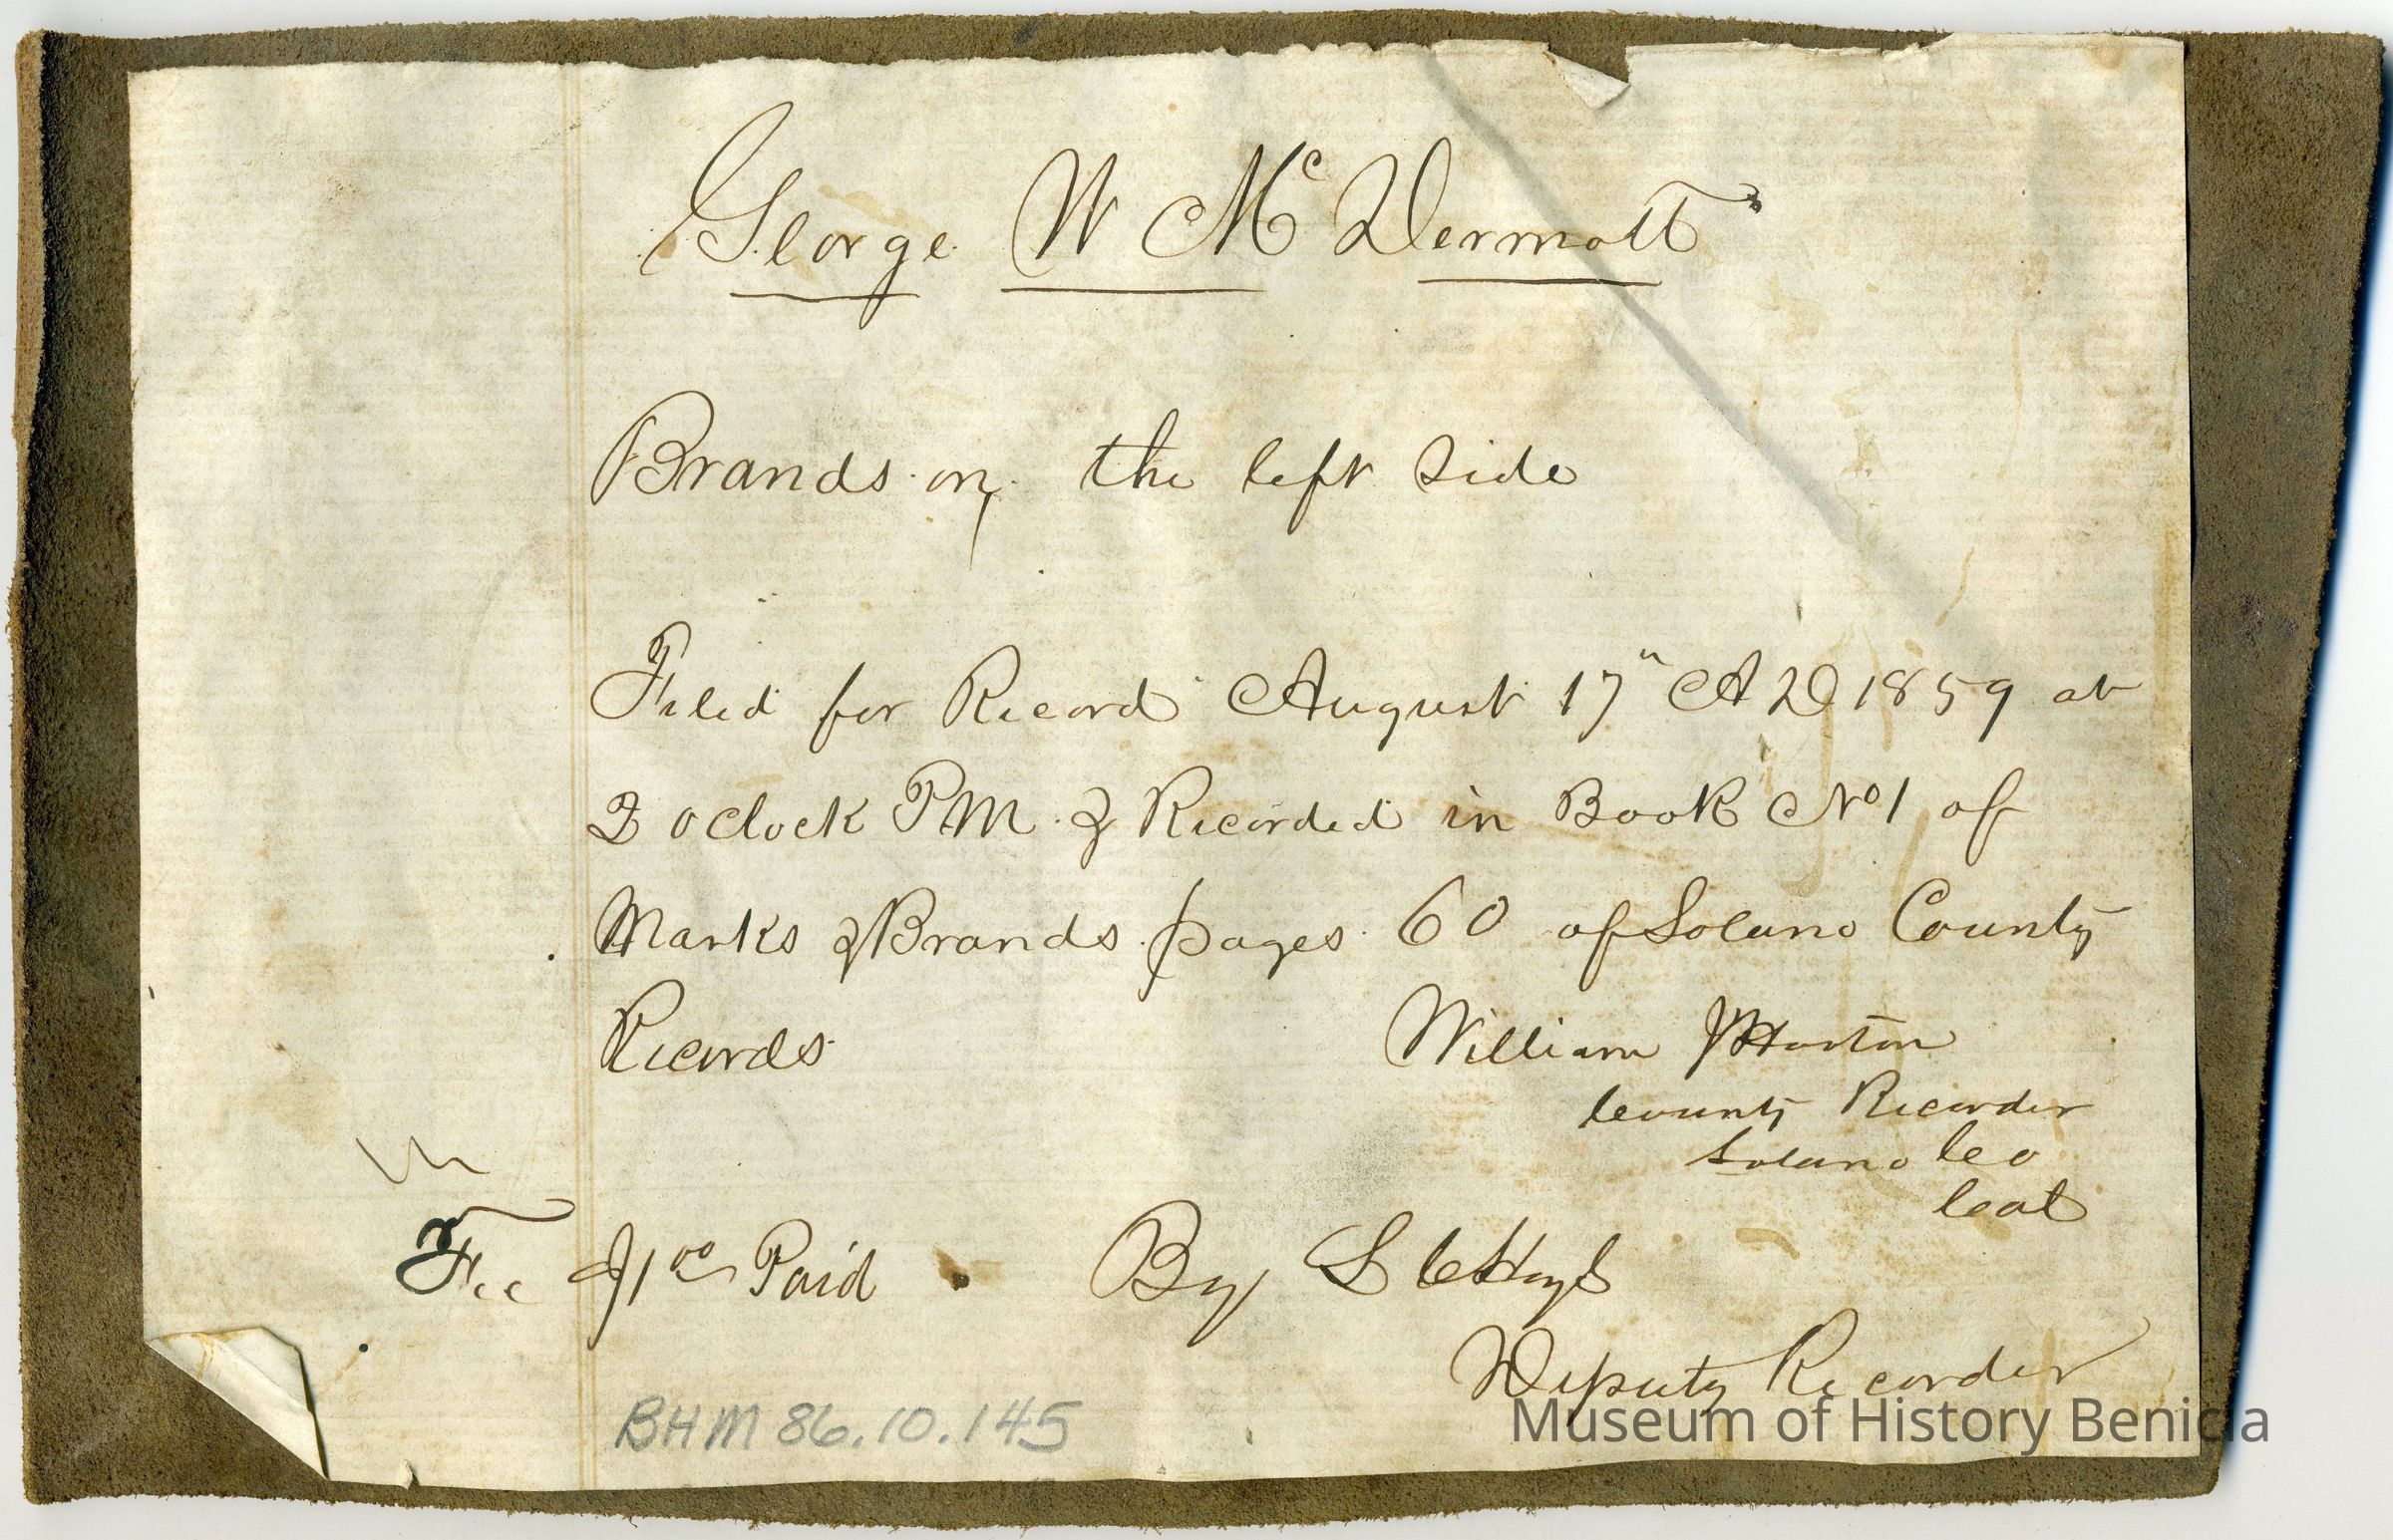 George W McDermott
Brands on the left Side
Filed for Record August 17" A D 1859 at
2 oclock P M & Recorded in Book No 1 of
Marks & Brands pages 60 of Solano County
Records
William Hoxton
County Recorder
Solano Co
Cal
Fee $1 00 Paid By L C Hoyt
Deputy Recorder
BHM 86.10.145
Museum of History Benicia